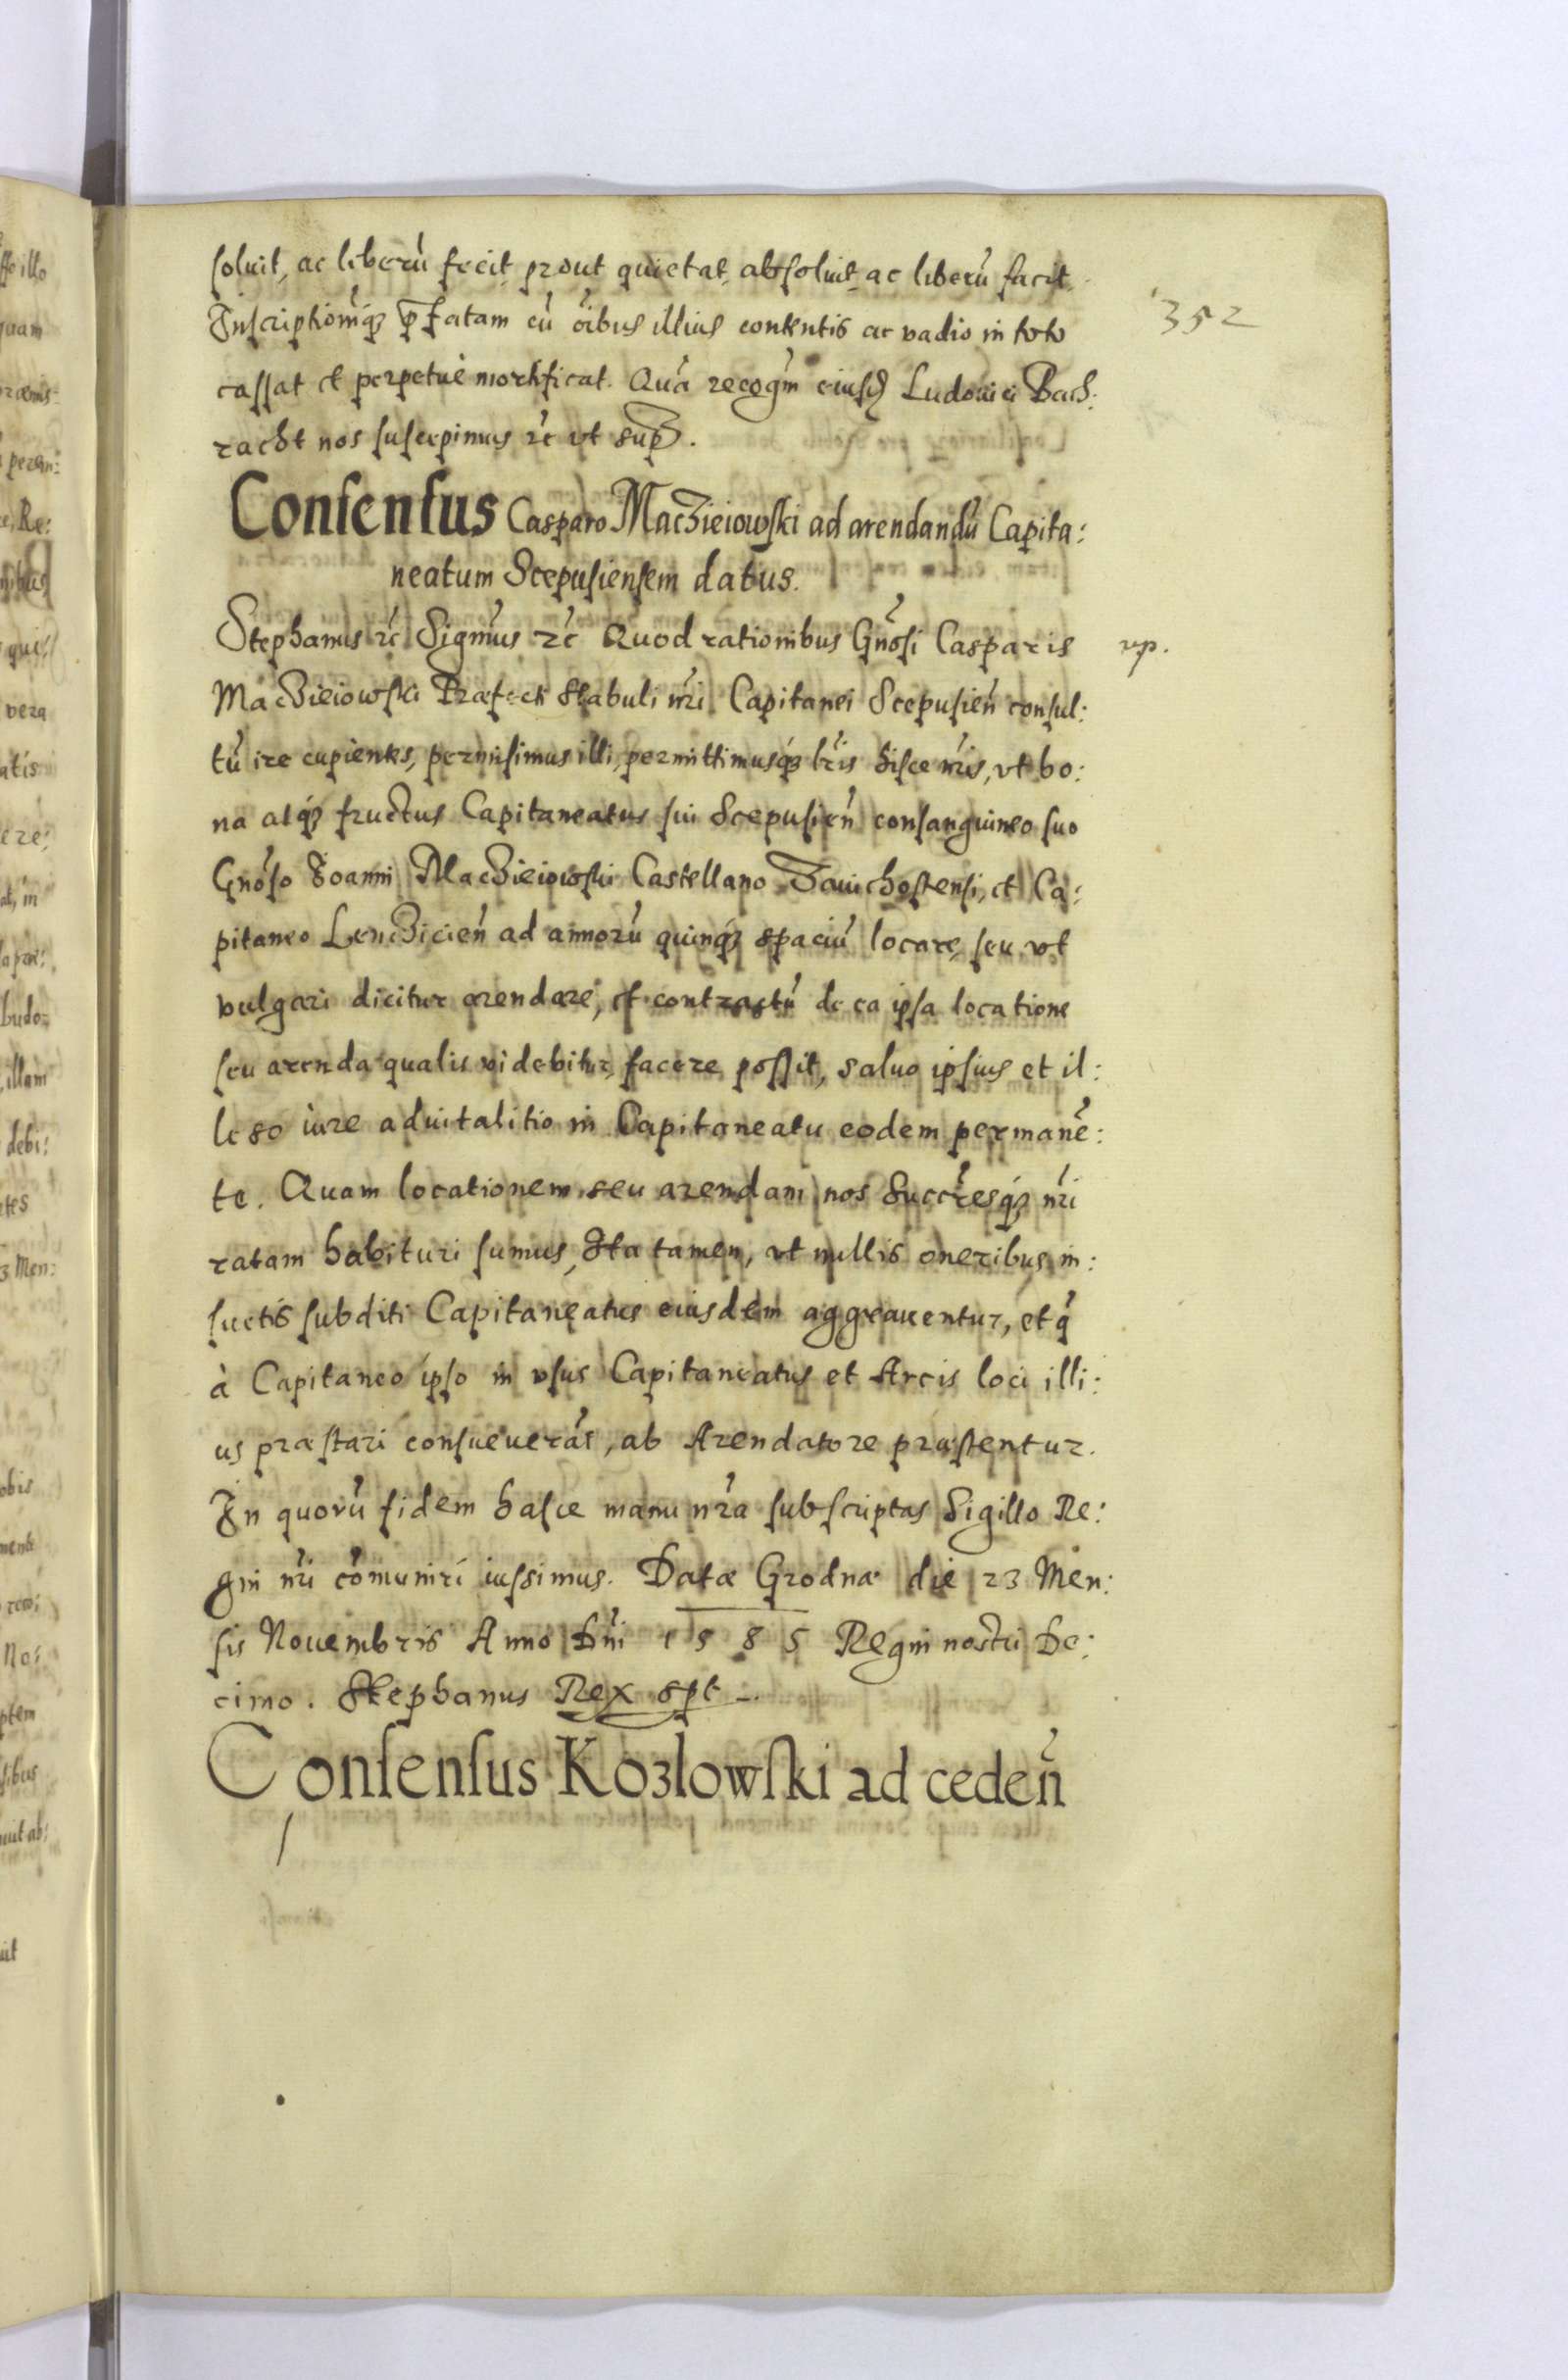 soluit, ac liberũ fecit, prout quietat, absoluit, ac liberũ facit.
352
Inscriptiom̃q₃ p̃fatam cũ õibus illius contentis ac vadio in toto
cassat et perpetuè mortificat. Quã recogm̃ eiusd Ludouici Bach:
racht nos suscepimus ꝛc̃ vt sup.
Consensus Casparo Macźieiowski ad arendandũ Capita:
neatum Scepusiensem datus.
Stephanus ꝛc̃ Sigm̃us ꝛc̃ Quod rationibus Gñosi Casparis
vp.
Macźieiowski Præfecti Stabuli ñri Capitanei Scepusieñ consul:
tũ ire cupientes, permisimus illi, permittimusq́₃ lr̃is hisce ñris, vt bo:
na atq́₃ fructus Capitaneatus sui Scepusieñ consanguineo suo
Gñoso Ioanni Macźieiowski Castellano Zauichostensi, et Ca:
pitaneo Lencźicieñ ad annorũ quinq́₃ spaciũ locare, seu vt
vulgari dicitur arendare, et contractũ de ea ipsa locatione
seu arenda qualis videbitur, facere possit, saluo ipsius et il:
leso iure aduitalitio in Capitaneatu eodem permanẽ:
te. Quam locationem seu arendam nos Succr̃esq́₃ ñri
ratam habituri sumus, Ita tamen, vt nullis oneribus in:
suetis subditi Capitaneatus eiusdem aggrauentur, et q̃
à Capitaneo ipso in vsus Capitaneatus et Arcis loci illi:
us præstari consueuerãt, ab Arendatore præstentur.
In quorũ fidem hasce manu nr̃a subscriptas Sigillo Re:
gni ñri cõmuniri iussimus. Datæ Grodnæ die 23 Men:
sis Nouembris Anno Dñi 1585 Regni nostri De:
cimo. Stephanus Rex spt
Consensus Kozlowski ad cedeñ